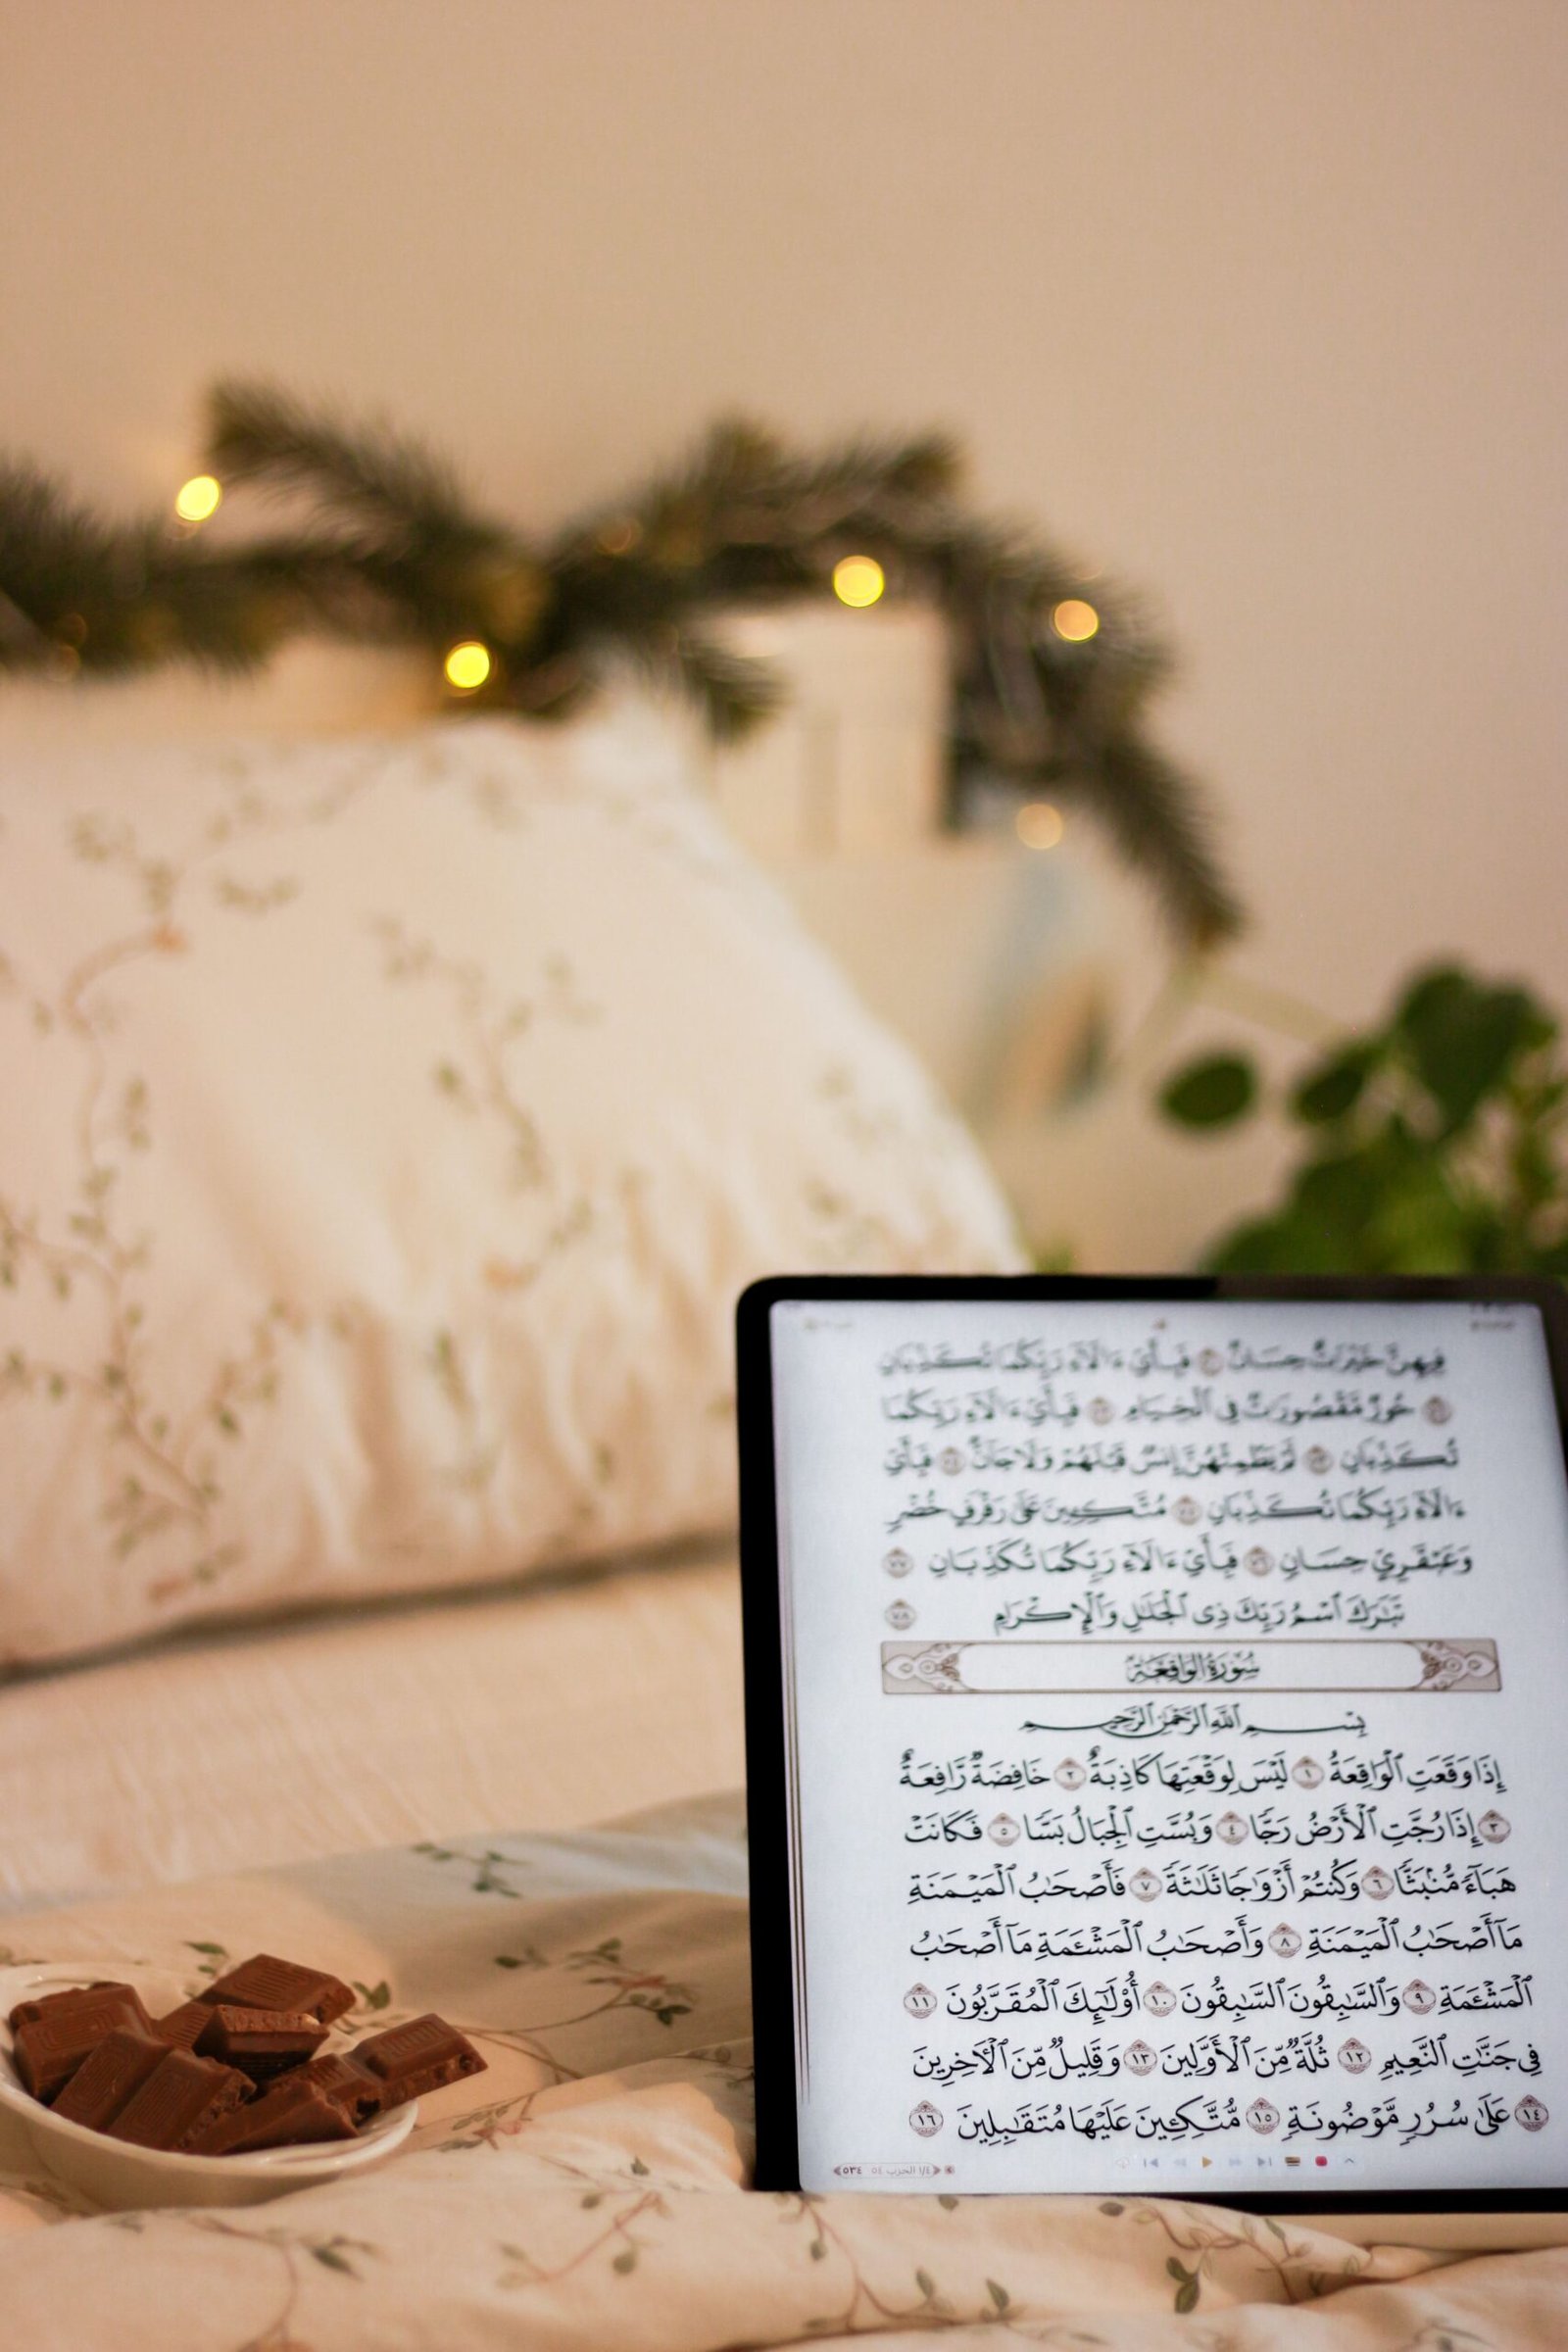 فِيهِنَّ خَيْرَٰتٌ حِسَانٌ ٧٠ فَبِأَىِّ ءَالَآءِ رَبِّكُمَا تُكَذِّبَانِ
٧١ حُورٌ مَّقْصُورَٰتٌ فِى ٱلْخِيَامِ ٧٢ فَبِأَىِّ ءَالَآءِ رَبِّكُمَا
تُكَذِّبَانِ ٧٣ لَمْ يَطْمِثْهُنَّ إِنسٌ قَبْلَهُمْ وَلَا جَآنٌّ ٧٤ فَبِأَىِّ
ءَالَآءِ رَبِّكُمَا تُكَذِّبَانِ ٧٥ مُتَّكِـِٔينَ عَلَىٰ رَفْرَفٍ خُضْرٍ
وَعَبْقَرِىٍّ حِسَانٍ ٧٦ فَبِأَىِّ ءَالَآءِ رَبِّكُمَا تُكَذِّبَانِ ٧٧
تَبَٰرَكَ ٱسْمُ رَبِّكَ ذِى ٱلْجَلَٰلِ وَٱلْإِكْرَامِ ٧٨
سُورَةُ الوَاقِعَة
بِسْمِ ٱللَّهِ ٱلرَّحْمَٰنِ ٱلرَّحِيمِ
إِذَا وَقَعَتِ ٱلْوَاقِعَةُ ١ لَيْسَ لِوَقْعَتِهَا كَاذِبَةٌ ٢ خَافِضَةٌ رَّافِعَةٌ
٣ إِذَا رُجَّتِ ٱلْأَرْضُ رَجًّا ٤ وَبُسَّتِ ٱلْجِبَالُ بَسًّا ٥ فَكَانَتْ
هَبَآءً مُّنۢبَثًّا ٦ وَكُنتُمْ أَزْوَٰجًا ثَلَٰثَةً ٧ فَأَصْحَٰبُ ٱلْمَيْمَنَةِ
مَآ أَصْحَٰبُ ٱلْمَيْمَنَةِ ٨ وَأَصْحَٰبُ ٱلْمَشْـَٔمَةِ مَآ أَصْحَٰبُ
ٱلْمَشْـَٔمَةِ ٩ وَٱلسَّٰبِقُونَ ٱلسَّٰبِقُونَ ١٠ أُو۟لَٰٓئِكَ ٱلْمُقَرَّبُونَ ١١
فِى جَنَّٰتِ ٱلنَّعِيمِ ١٢ ثُلَّةٌ مِّنَ ٱلْأَوَّلِينَ ١٣ وَقَلِيلٌ مِّنَ ٱلْـَٔاخِرِينَ
١٤ عَلَىٰ سُرُرٍ مَّوْضُونَةٍ ١٥ مُّتَّكِـِٔينَ عَلَيْهَا مُتَقَٰبِلِينَ ١٦
١/٤ الحزب ٥٤ ٥٣٤